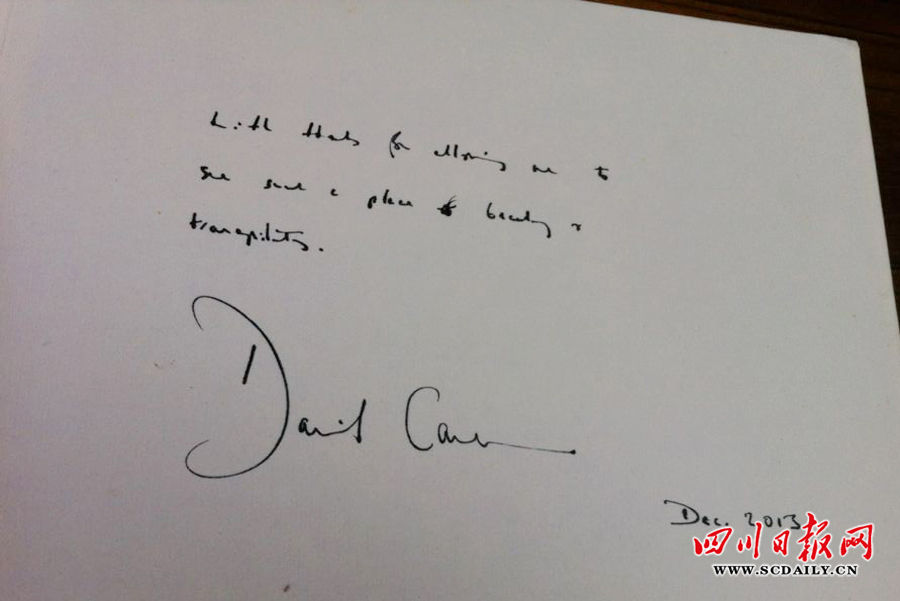 With thanks for allowing me to
see such a place of beauty &
tranquility.
David Cameron
Dec. 2013
四川日报网
WWW.SCDAILY.CN